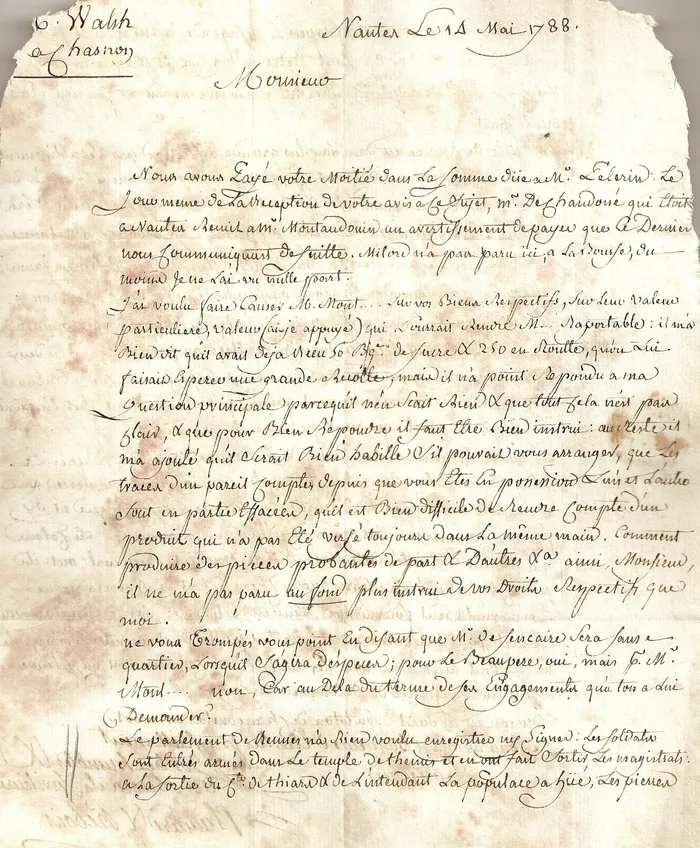 C. Walsh
a Chasnon
Nantes Le 14 Mai 1788.
Monsieur
Nous avons Payé votre Moitié dans La Somme düe a Mr. Pelerin: Le
Jour meme de La Reception de votre avis a Ce Sujet, mr. De Chandoné qui Etoit
a Nantes Remit a Mr. Montaudouin un avertissement de payer que Ce Dernier
nous Communiquat de suitte. Milord n'a pas paru ici, a La Bourse, du
moins Je ne L'ai vu nulle part.
J'ai voulu faire Causer M. Mont.... Sur vos Biens Respectifs, Sur Leur valeur
particuliere, valeur (ai-je appuyé) qui Pourrait Rendre M... Raportable: il m'a
Bien dit qu'il avait deja Recu 50 Bques de Sucre & 250 en Routte, qu'on Lui
faisait Esperer une grande Recolte, mais il n'a point Repondu a ma
Question principale parcequ'il n'en Scait Rien & que tout Cela n'est pas
Clair, & que pour Bien Repondre il faut Etre Bien instrui: au Reste il
m'a ajouté qu'il Serait Bien habille S'il pouvait vous arranger, que Les
traces d'un pareil Compte, depuis que vous Etes En possession L'un et L'autre
Sont en partie Effacées, qu'il est Bien difficile de Rendre Compte d'un
produit qui n'a pas Eté versé toujours dans La même main. Comment
produire des pieces probantes de part & D'autres &a. ainsi, Monsieur,
il ne m'a pas paru au fond plus instrui de vos Droits Respectifs que
moi.
ne vous Trompés vous point En disant que Mr. de Sencaire Sera Sans
quartier, Lorsqu'il S'agira d'especes; pour Le Beaupere, oui, mais p. Mr.
Mont.... non, Car au Dela du terme de ses Engagements qu'a t'on a Lui
Demander?
Le parlement de Rennes n'a Rien voulu enregistrer ny Signer: Les Soldats
Sont Entrés armés dans Le temple de themis et en ont fait Sortir Les magistrats:
a La Sortie du Cte. de thiard & de L'intendant La populace a hüé, Les pierres